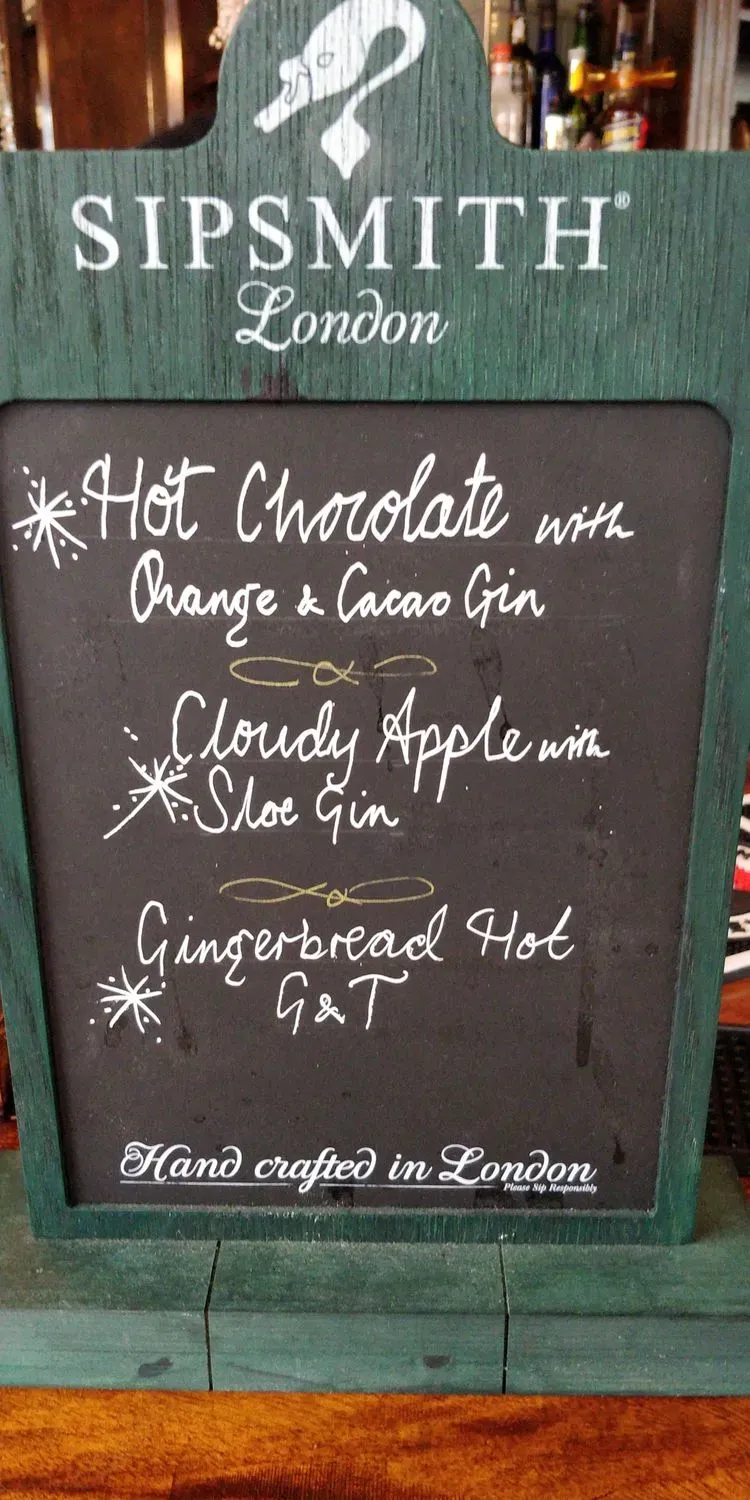 SIPSMITH®
London
Hot Chocolate with
Orange & Cacao Gin
Cloudy Apple with
Sloe Gin
Gingerbread Hot
G&T
Hand crafted in London
Please Sip Responsibly